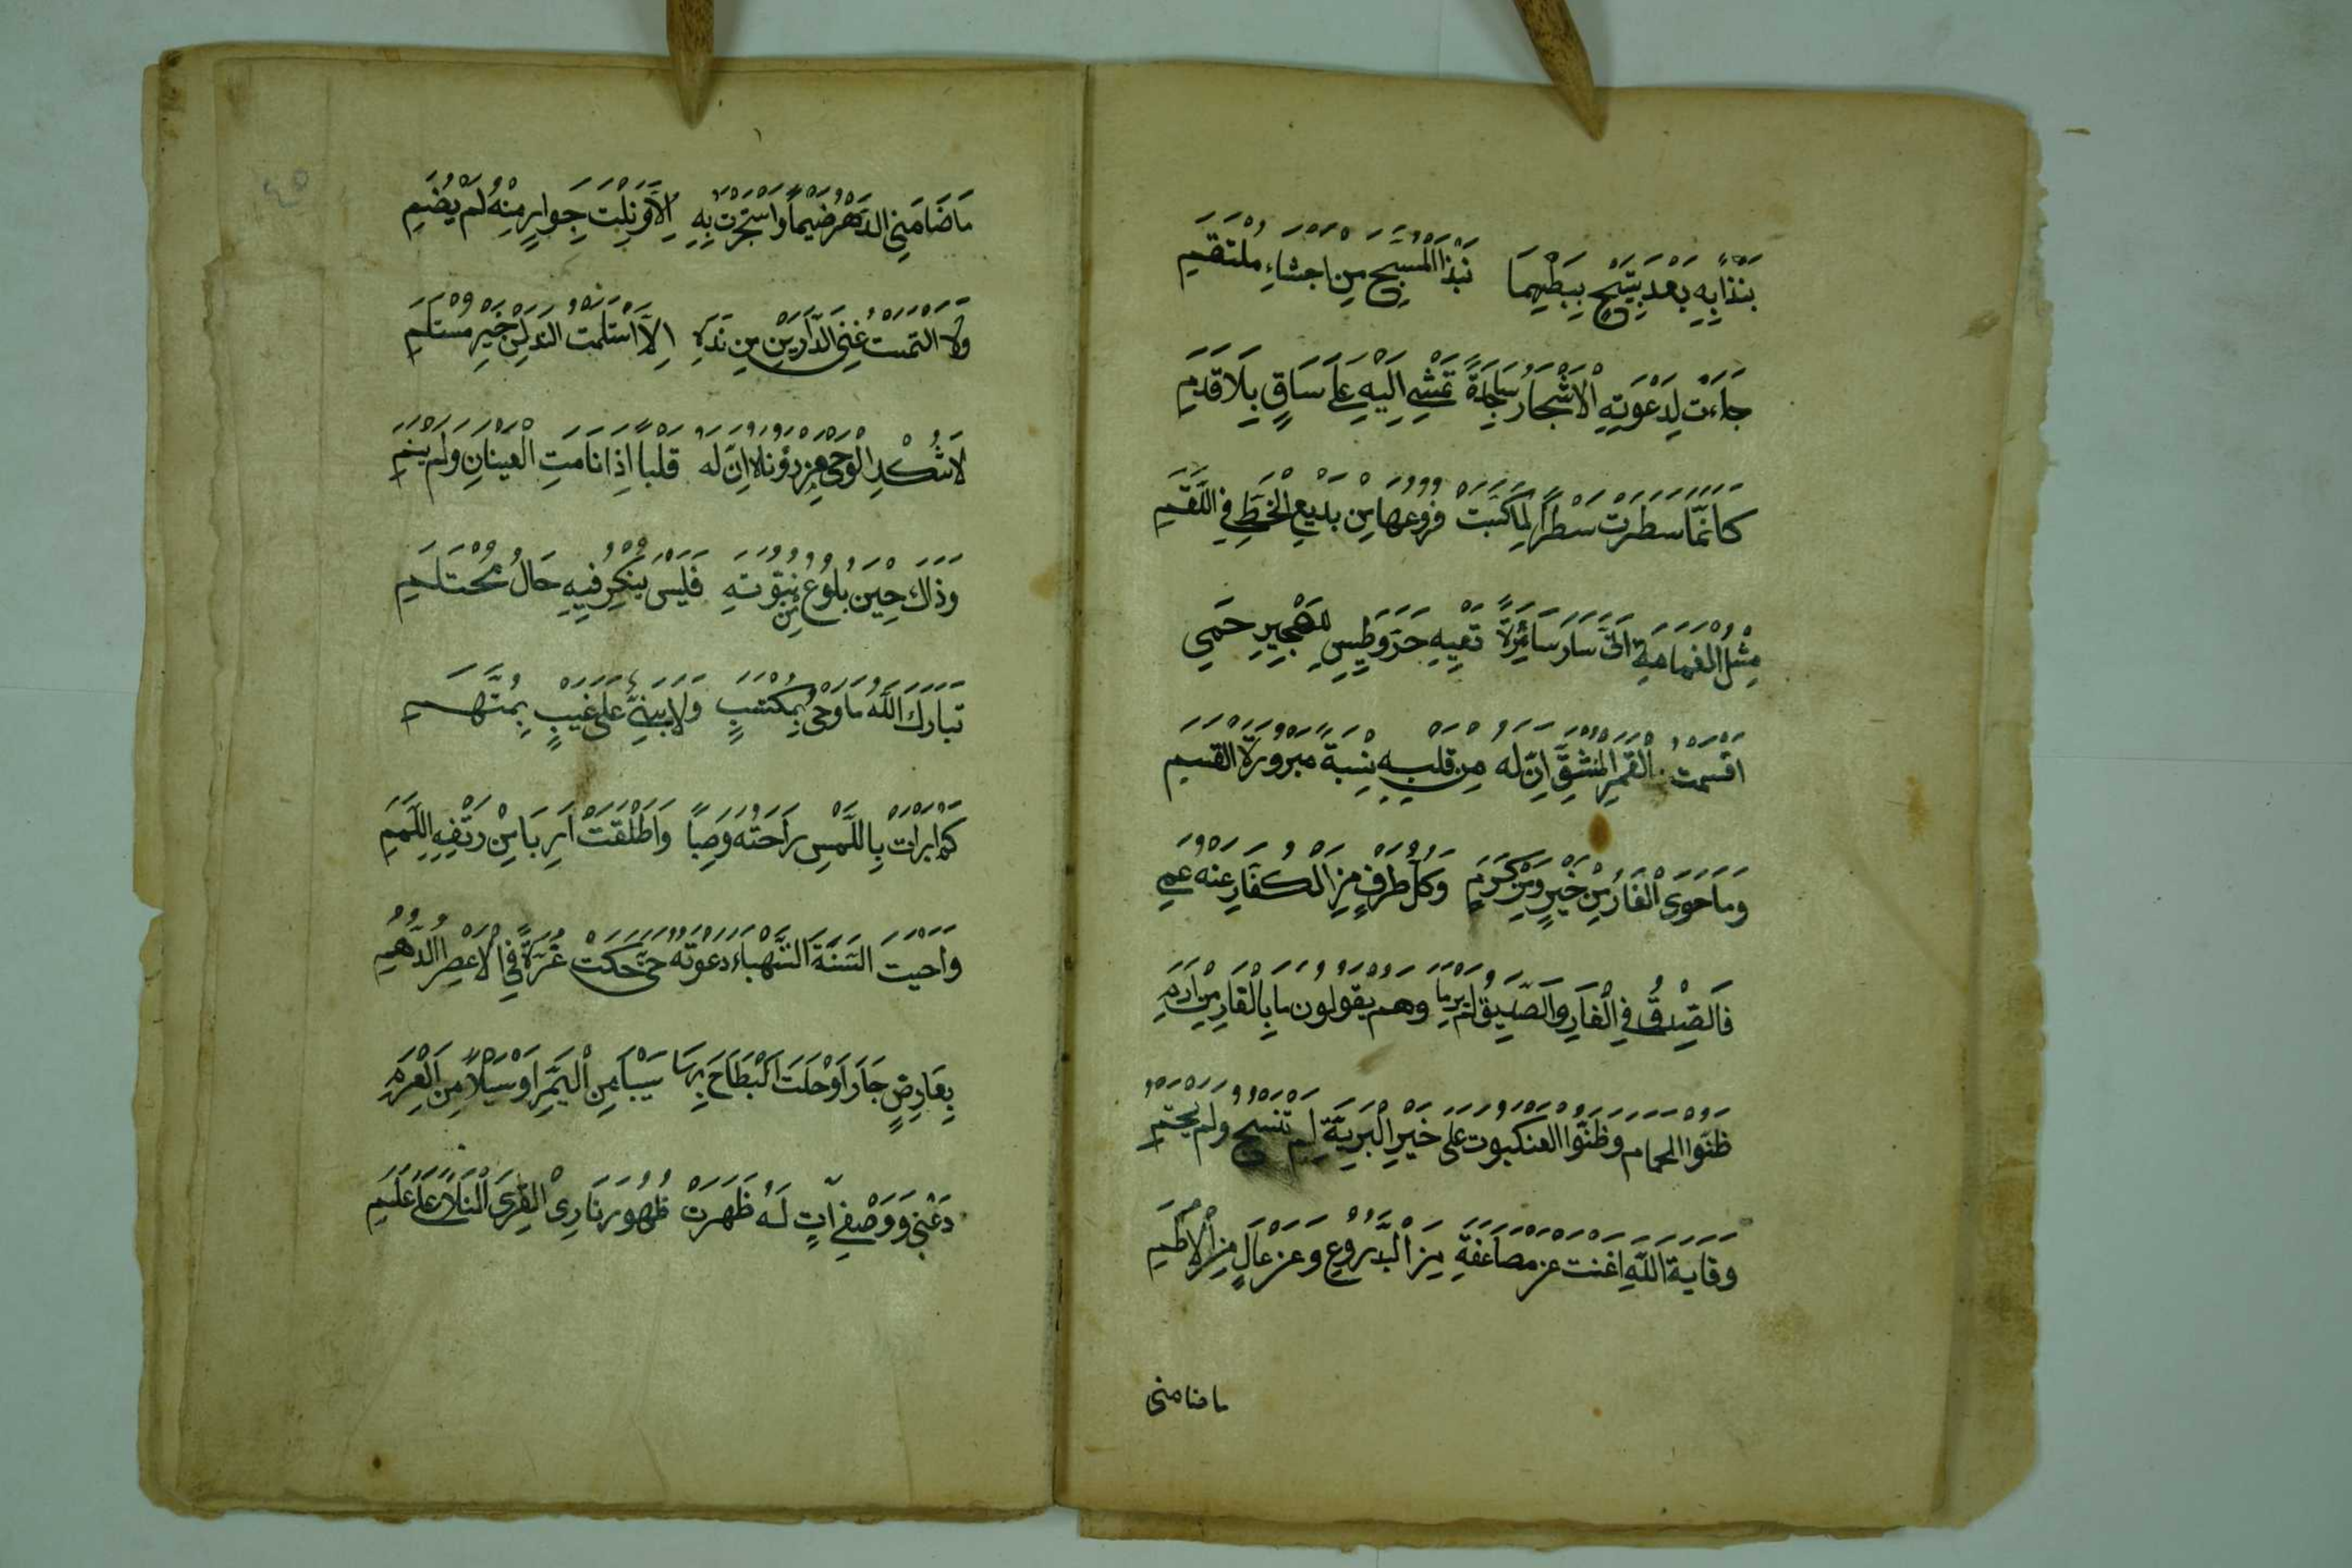 نَبْذًا بِهِ بَعْدَ تَسْبِيْحٍ بِبَطْنِهِمَا نَبْذَ الْمُسَبِّحِ مِنْ اَحْشَاءِ مُلْتَقِمِ
جَاءَتْ لِدَعْوَتِهِ الْاَشْجَارُ سَاجِدَةً تَمْشِي اِلَيْهِ عَلَى سَاقٍ بِلَا قَدَمِ
كَاَنَّمَا سَطَرَتْ سَطْرًا لِمَا كَتَبَتْ فُرُوعُهَا مِنْ بَدِيْعِ الْخَطِّ فِي اللَّقَمِ
مِثْلُ الْغَمَامَةِ اَنَّى سَارَ سَائِرَةً تَقِيْهِ حَرَّ وَطِيْسٍ لِلْهَجِيْرِ حَمِي
اَقْسَمْتُ بِالْقَمَرِ الْمُنْشَقِّ اِنَّ لَهُ مِنْ قَلْبِهِ نِسْبَةً مَبْرُوْرَةَ الْقَسَمِ
وَمَا حَوَى الْغَارُ مِنْ خَيْرٍ وَمِنْ كَرَمٍ وَكُلُّ طَرْفٍ مِنَ الْكُفَّارِ عَنْهُ عَمِي
فَالصِّدْقُ فِي الْغَارِ وَالصِّدِّيْقُ لَمْ يَرِمَا وَهُمْ يَقُولُونَ مَا بِالْغَارِ مِنْ اَرِمِ
ظَنُّوا الْحَمَامَ وَظَنُّوا الْعَنْكَبُوتَ عَلَى خَيْرِ الْبَرِيَّةِ لَمْ تَنْسُجْ وَلَمْ تَحُمِ
وِقَايَةُ اللّٰهِ اَغْنَتْ عَنْ مُضَاعَفَةٍ مِنَ الدُّرُوْعِ وَعَنْ عَالٍ مِنَ الْاُطُمِ
ماضامنى
مَا ضَامَنِي الدَّهْرُ ضَيْمًا وَاسْتَجَرْتُ بِهِ اِلَّا وَنِلْتُ جِوَارًا مِنْهُ لَمْ يُضَمِ
وَلَا الْتَمَسْتُ غِنَى الدَّارَيْنِ مِنْ يَدِهِ اِلَّا اسْتَلَمْتُ النَّدَى مِنْ خَيْرِ مُسْتَلَمِ
لَا تُنْكِرِ الْوَحْيَ مِنْ رُؤْيَاهُ اِنَّ لَهُ قَلْبًا اِذَا نَامَتِ الْعَيْنَانِ وَلَمْ يَنَمِ
وَذَاكَ حِيْنَ بُلُوْغٍ مِنْ نُبُوَّتِهِ فَلَيْسَ يُنْكَرُ فِيْهِ حَالُ مُحْتَلِمِ
تَبَارَكَ اللّٰهُ مَا وَحْيٌ بِمُكْتَسَبٍ وَلَا نَبِيٌّ عَلَى غَيْبٍ بِمُتَّهَمِ
كَمْ اَبْرَأَتْ بِاللَّمْسِ رَاحَتُهُ وَصِبًا وَاَطْلَقَتْ اَرِبًا مِنْ رِبْقَةِ اللَّمَمِ
وَاَحْيَتِ السَّنَةَ الشَّهْبَاءَ دَعْوَتُهُ حَتَّى حَكَتْ غُرَّةً فِي الْاَعْصُرِ الدُّهُمِ
بِعَارِضٍ جَادَ اَوْ خِلْتَ الْبِطَاحَ بِهَا سَيْبًا مِنَ الْيَمِّ اَوْ سَيْلًا مِنَ الْعَرِمِ
دَعْنِي وَوَصْفِيَ اٰيَاتٍ لَهُ ظَهَرَتْ ظُهُوْرَ نَارِ الْقِرَى لَيْلًا عَلَى عَلَمِ